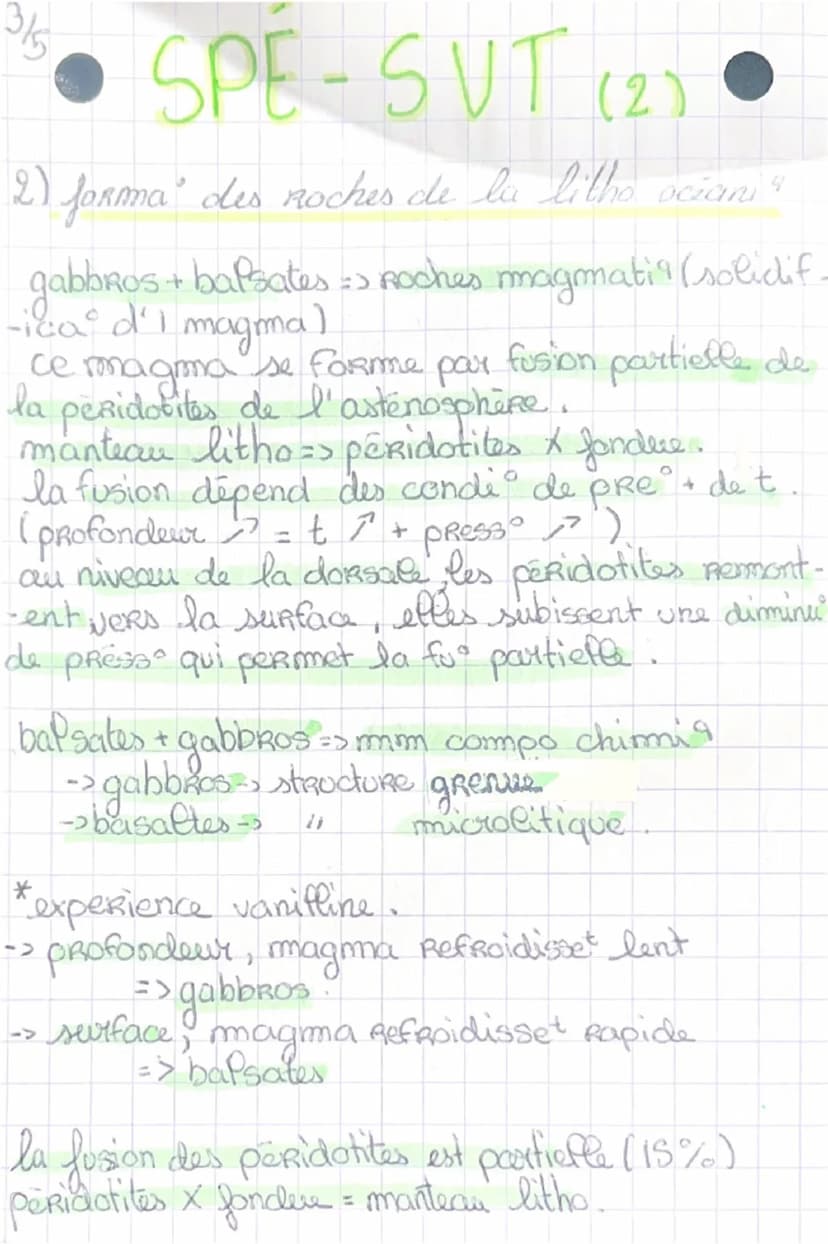 3/5
SPÉ-SVT (2)
2) forma° des roches de la litho océani q
gabbros + balsates => roches magmati q (solidif-
-ica° d'1 magma)
ce magma se forme par fusion partielle de
la péridotites de l'asténosphère.
manteau litho => péridotites X fondue.
la fusion dépend des condi° de pre° + de t.
(profondeur ↗ = t ↗ + press° ↗)
au niveau de la dorsale, les péridotites remont-
-ent vers la surface, elles subissent une diminu°
de press° qui permet la fu° partielle.
balsates + gabbros => mm compo chimi q
-> gabbros -> structure grenue
-> basaltes -> " microlitique.
*experience vanilline.
-> profondeur, magma refroidisset lent
=> gabbros.
-> surface, magma refroidisset rapide
=> balsates
la fusion des péridotites est partielle (15%)
péridotites X fondue = manteau litho.